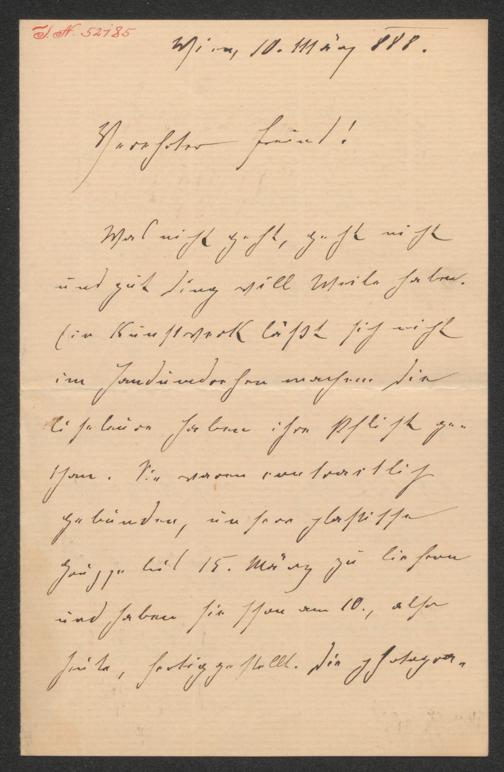 I. N. 52185
Wien, 10. März 888.
Verehrter Freund!
Was nicht geht, geht nicht
und gut Ding will Weile haben.
Ein Kunstwerk läßt sich nicht
im Handumdrehen machen. Die
haben ihre Pflicht ge-
than. Sie waren contractlich
gebunden, unsere plastische
Gruppe bis 15. März zu liefern
und haben sie schon am 10., also
heute, fertiggestellt. Die photogra-